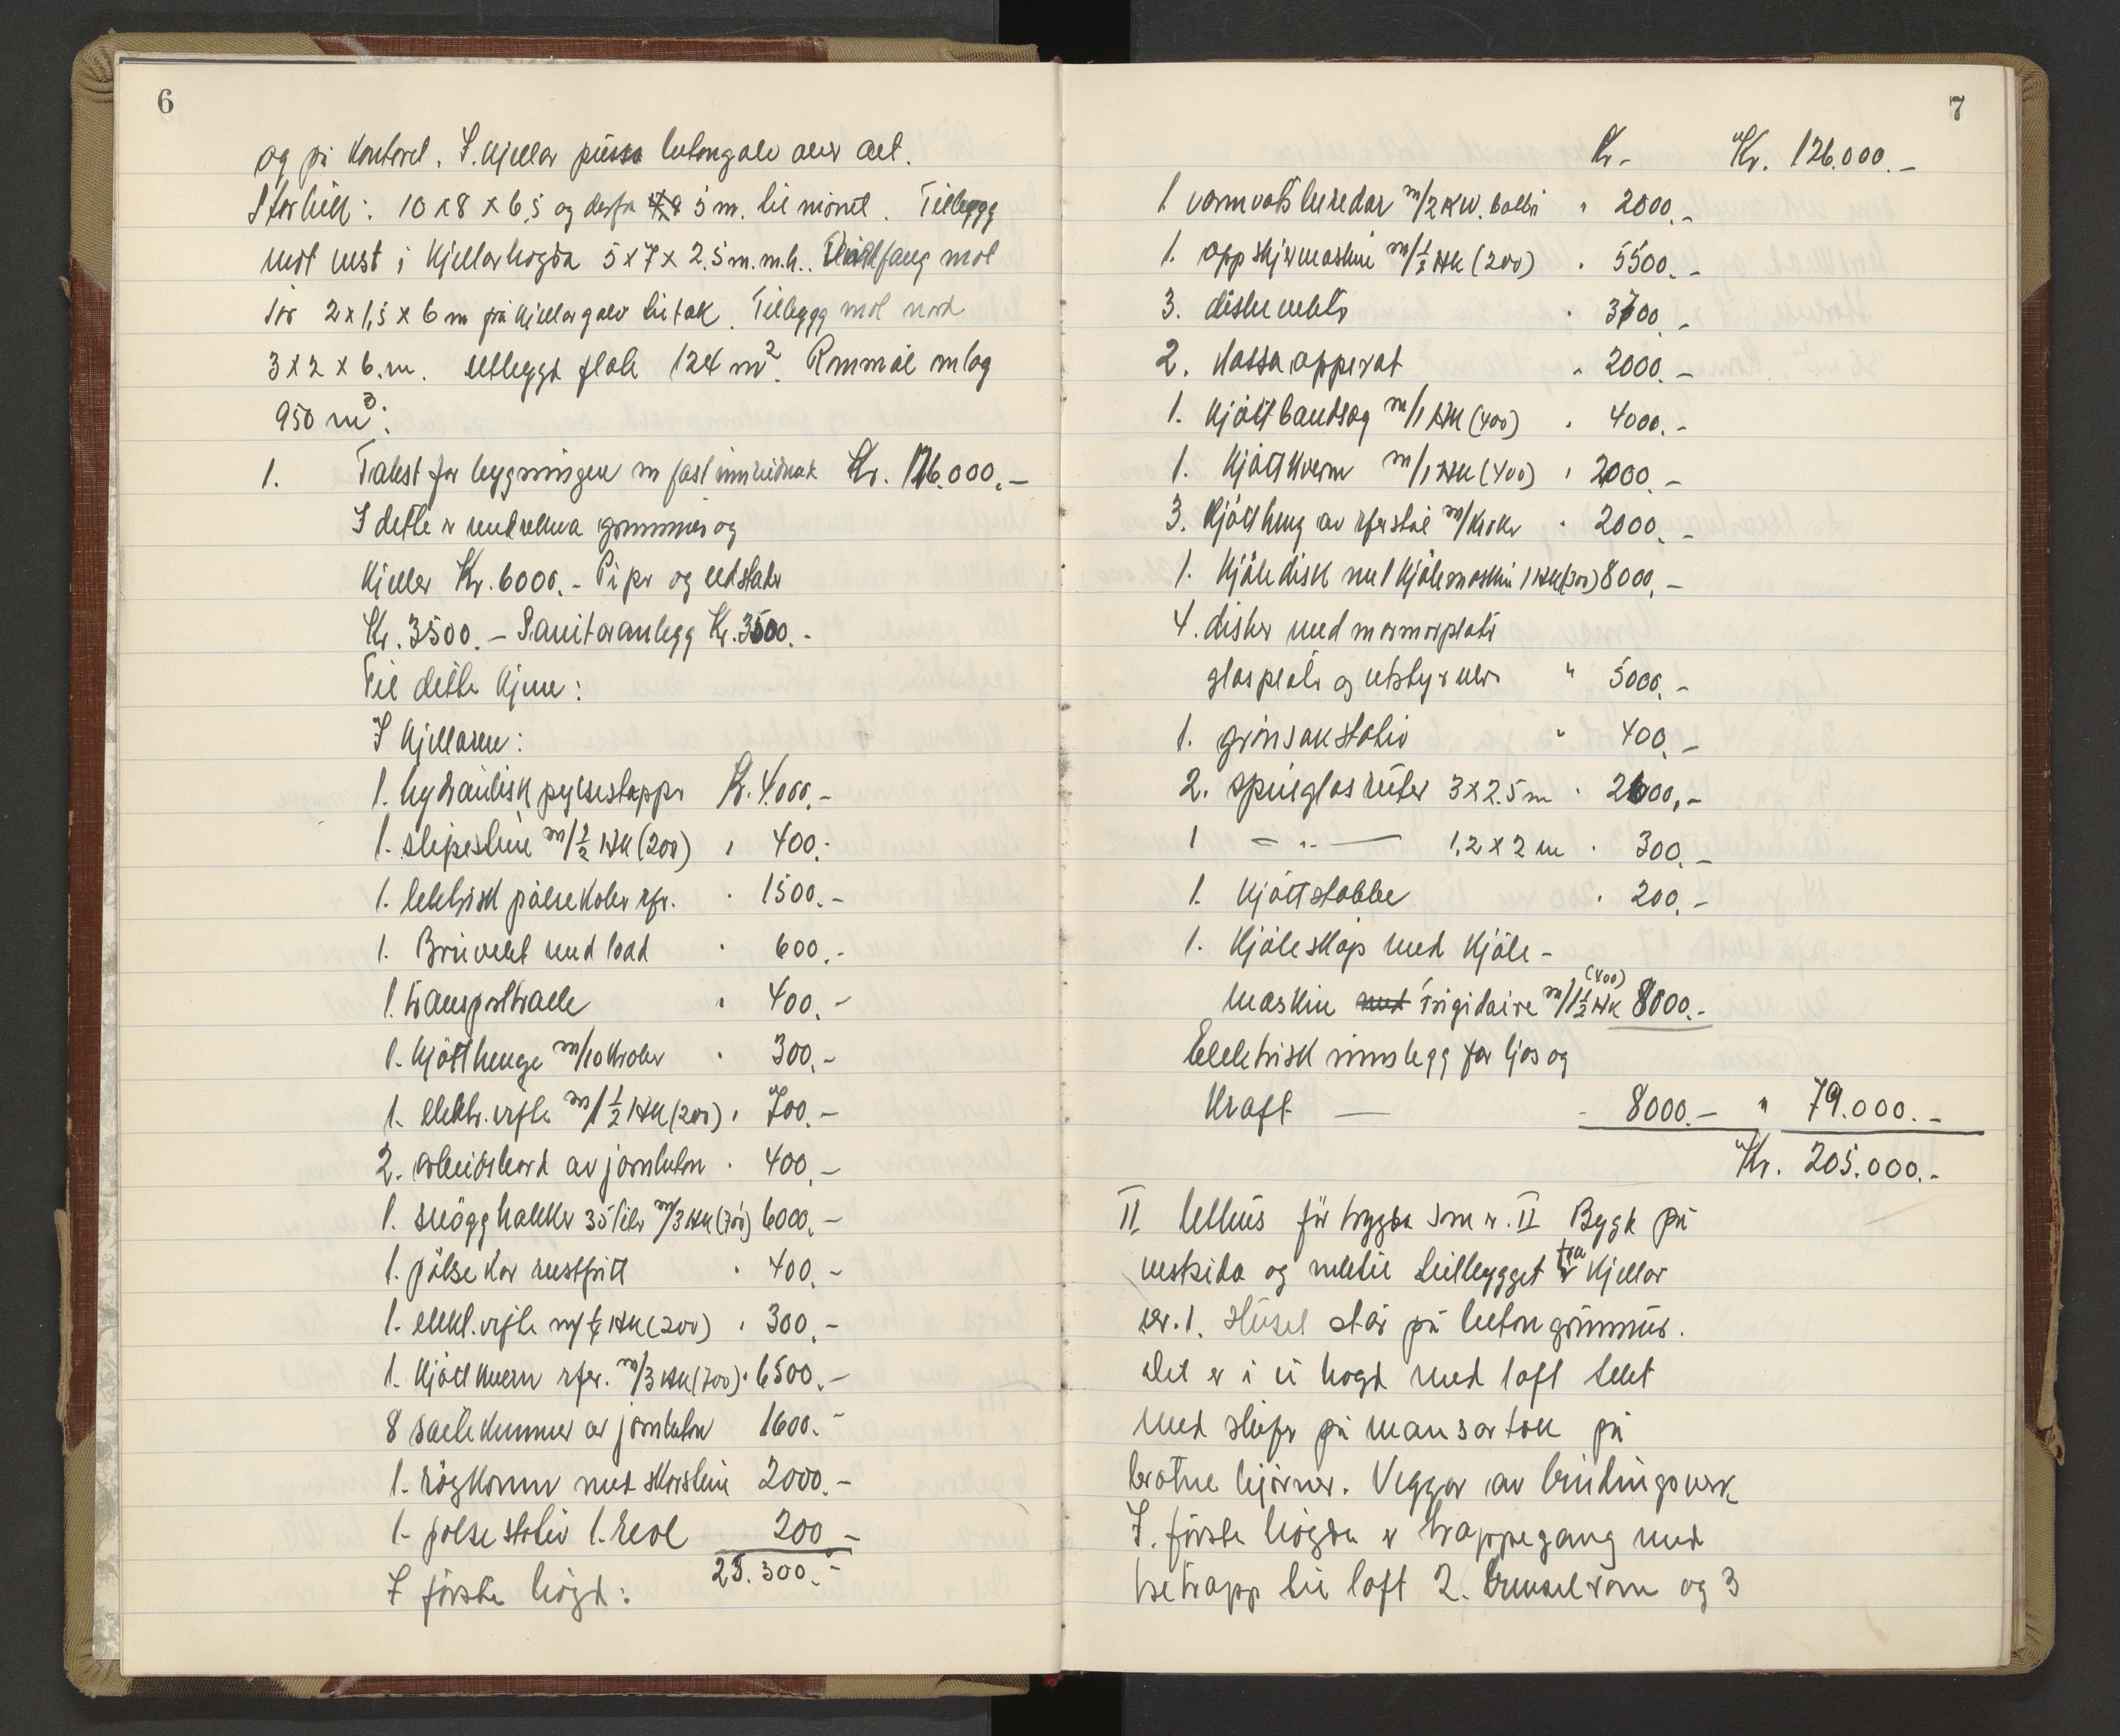 6
og på kontoret. I. kjellar pussa betongolv over alt.
Storleik: 10 x 8 x 6,5 og derfra 5 m. til mønet. Tillegg
mot vest i kjellarhøgda 5 x 7 x 2.5 m. m.h.. Vindfang mot
sør 2 x 1,5 x 6 m frå kjellargolv til tak. Tillegg mot nord
3 x 2 x 6. m. Utbyggd flate 124 m². Rommål omlag
950 m³:
1. Takst for bygningen m fast innreidnak Kr. 126.000.-
I dette er medrekna grunnmur og
kjeller Kr. 6000.- Pipe og eldstader
Kr. 3500.- Sanitæranlegg Kr. 3500.-
Til dette kjem:
I kjellaren:
1. hydraulisk pylsestappar Kr. 4.000.-
1. slipestein m/½ HK (200) " 400.-
1. elektrisk pølsekoker rfr. " 1500.-
1. Bruvekt med lodd " 600.-
1. transporttralle " 400.-
1. kjøtthenge m/10 kroker " 300.-
1. elektr. vifte m/1½ HK (200) " 700.-
2. arbeidsbord av jernbeton " 400.-
1. snøgghakker 35 liter m/3 HK (700) 6000.-
1. pølsekar rustfritt " 400.-
1. elekt. vifte m/¼ HK (200) " 300.-
1. kjøttkvern rfr. m/3 HK (700) " 6500.-
8 saltekummer av jernbeton 1600.-
1. røykovn med skorstein 2000.-
1. pølsestativ 1. reol 200 -
25.300.-
I første høgd:
7
Kr - Kr. 126.000.-
1 varmvatsberedar m/2 KW. batteri " 2000.-
1. oppskjermaskin m/½ HK (200) " 5500.-
3. diskevekter " 3700.-
2. kassaapperat " 2000.-
1. kjøttbandsag m/1 HK (400) " 4000.-
1. kjøttkvern m/1 HK (400) " 2000.-
3. kjøttheng av rfr stål m/kroker " 2000.-
1. kjøledisk med kjølemaskin 1 HK (300) 8000.-
4. disker med marmorplater
glasplate og utstyr elles " 5000.-
1. grønsakstativ " 400.-
2. speilglasruter 3 x 2.5 m " 2600.-
1 - " - 1,2 x 2 m " 300.-
1. kjøttstabbe " 200.-
1. kjøleskap med kjøle-
maskin med Frigidaire m/1½ HK (400) 8000.-
Elektrisk innlegg for ljos og
kraft - 8000.- " 79.000.-
Kr. 205.000.-
II Uthus før trygda som nr. II Bygt på
vestsida og inntil tillbygget fra kjellar
nr. 1. Huset står på betongrunnmur.
Det er i ei høgd med loft tekt
med skifer på mansartak på
brotne hjørner. Vegger av bindingsverk
I. første høgda er trappegang med
tretrapp til loft 2. brenselrom og 3